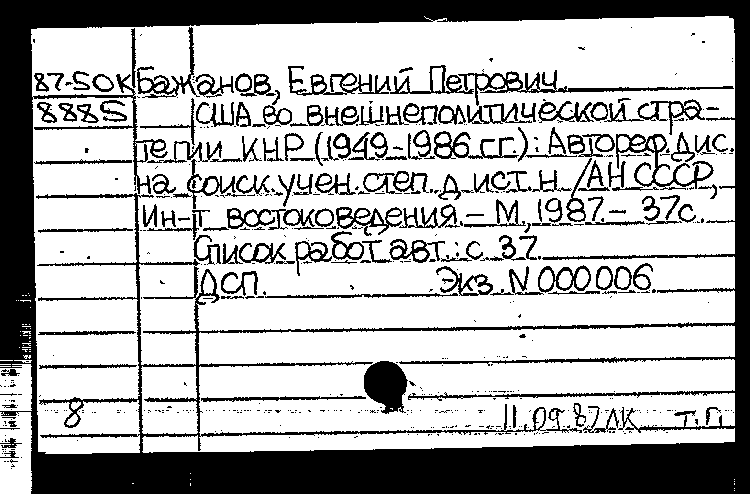 87-50К Бажанов, Евгений Петрович.
8885 США во внешнеполитической стра-
тегии КНР (1949-1986 гг.): Автореф. дис.
на соиск. учен. степ. д. ист. н. /АН СССР,
Ин-т востоковедения. - М., 1987. - 37с.
Список работ авт.: с. 37.
ДСП. Экз. N 000006.
8 11.09.87 ЛК Т.П.